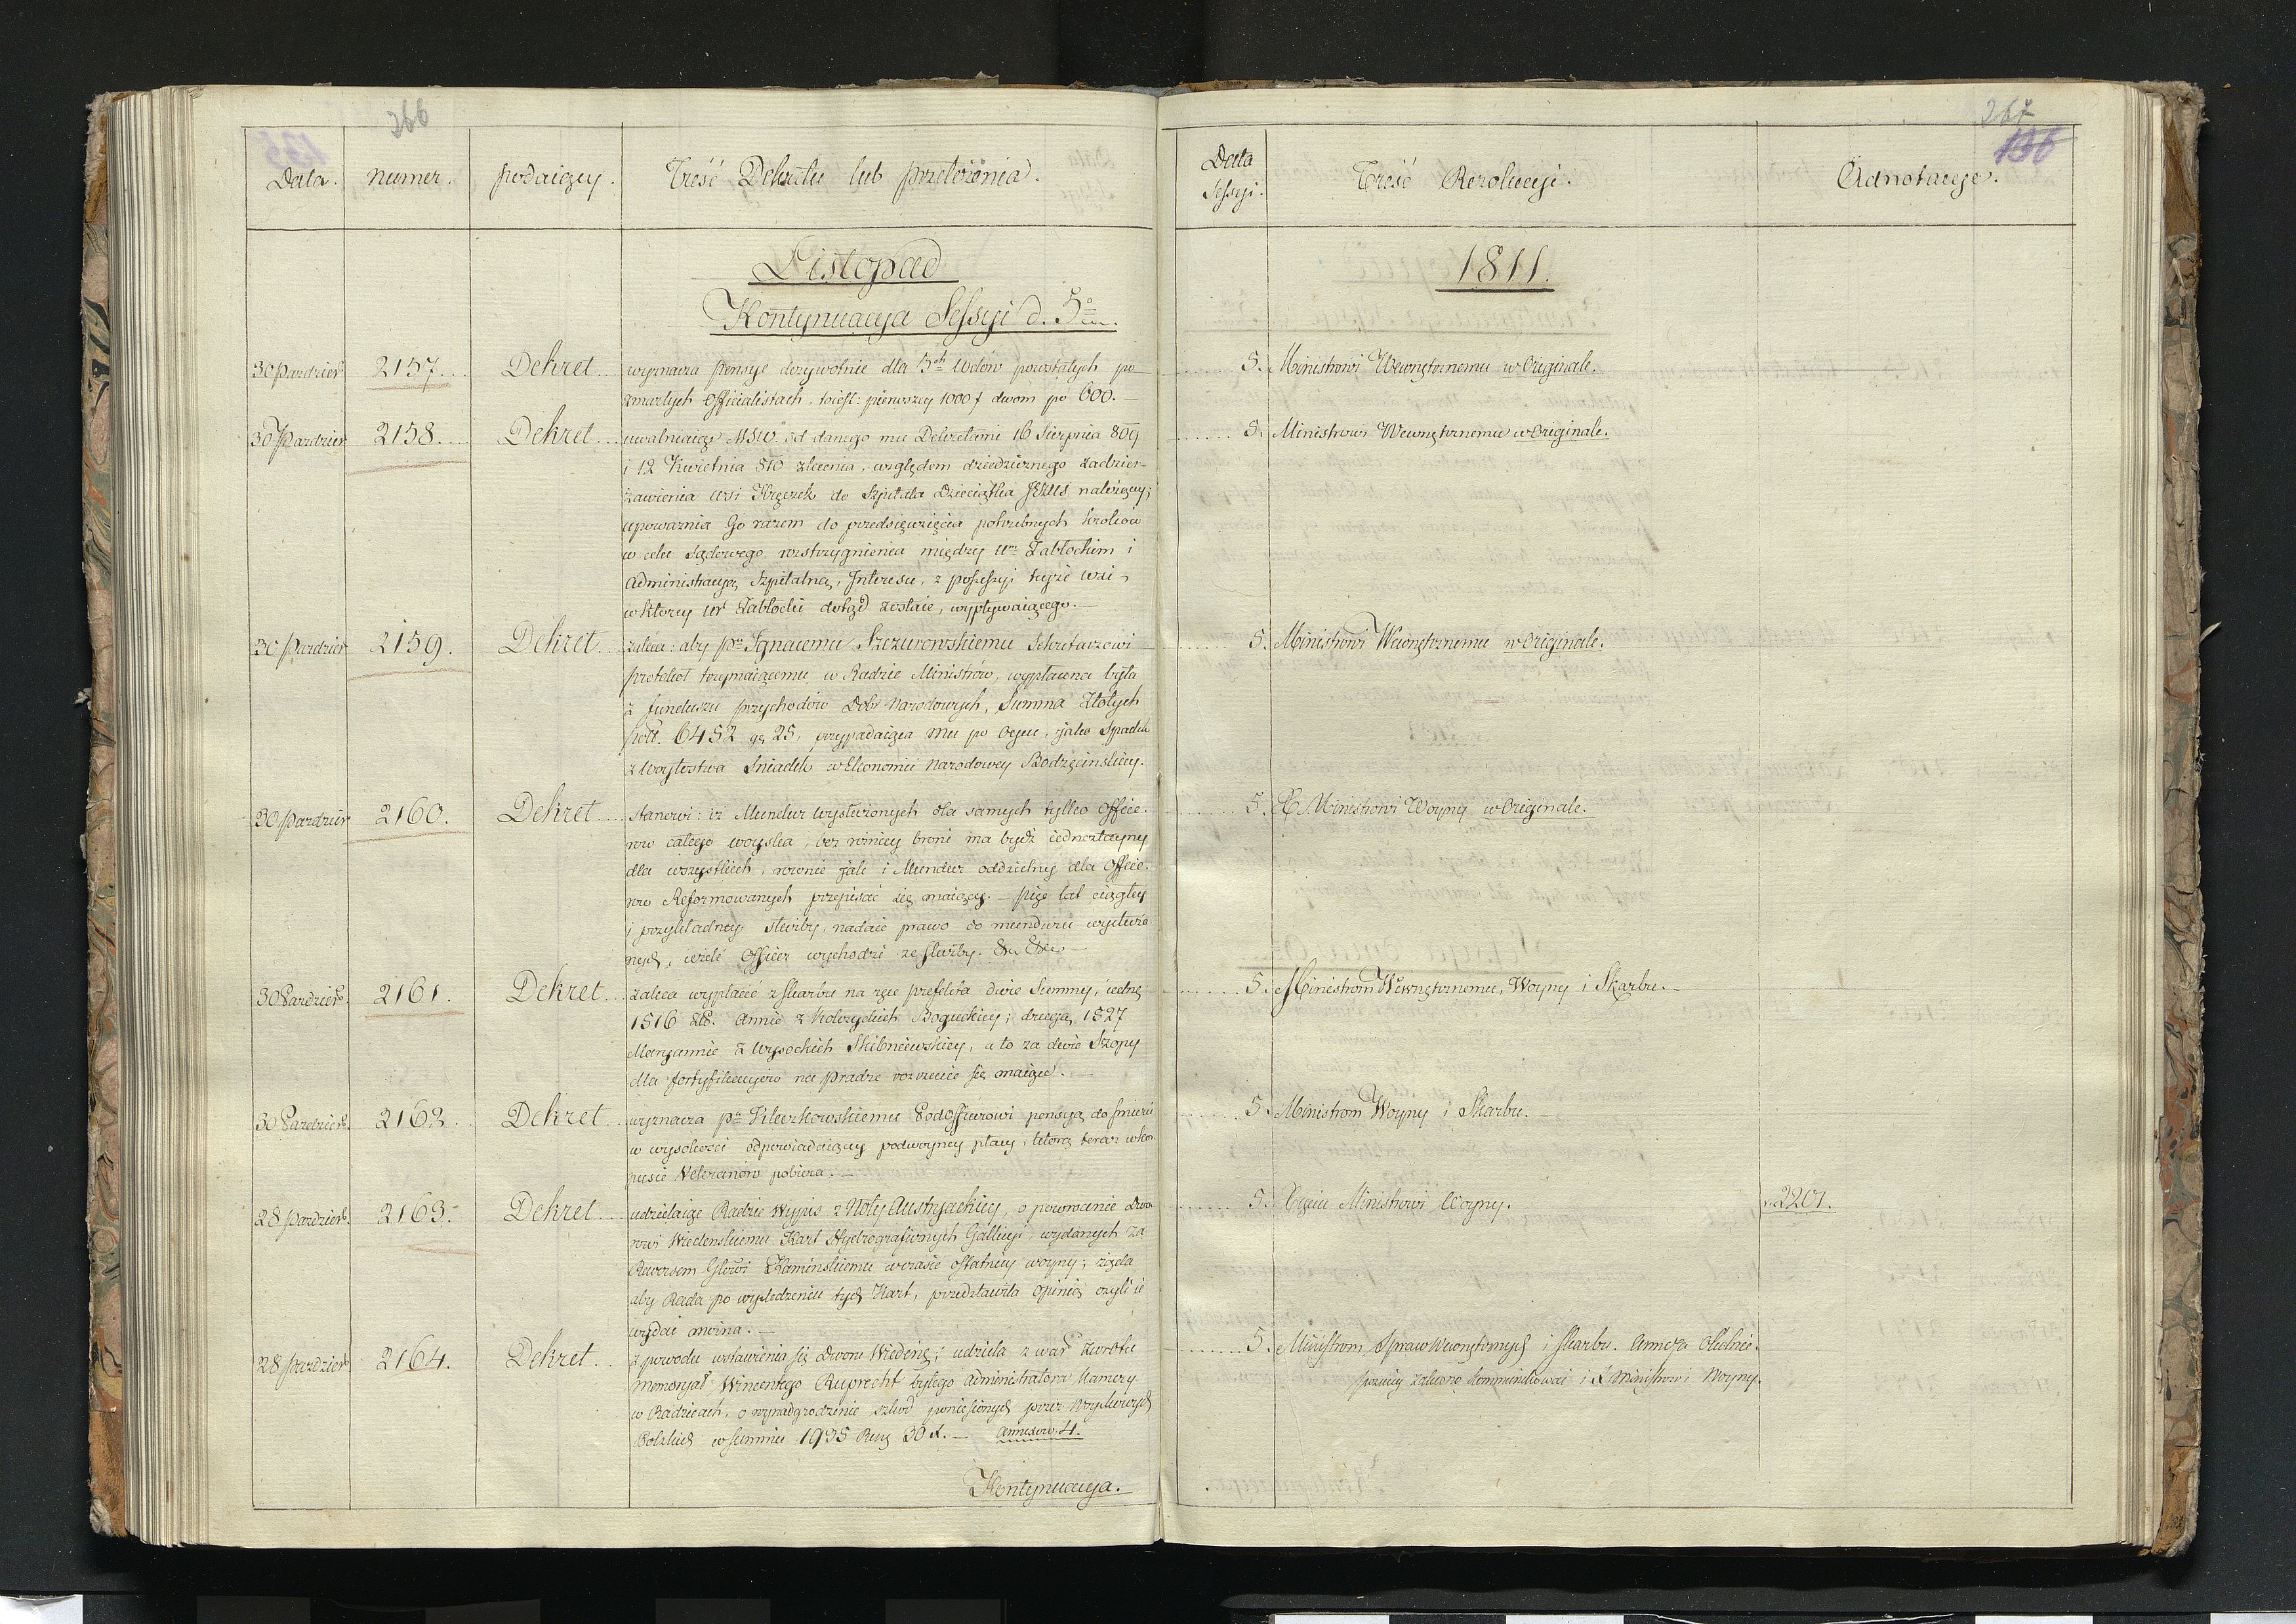 266
Data.
numer.
podaiący.
Treść Dekretu lub przełożenia.
Listopad
Kontynuacya Sessyi d. 5º
30 Pazdzier.
2157.
Dekret
wyznacza pensye dożywotnie dla 3ch Wdów pozostałych po
zmarłych Officialistach toiest: pierwszey 1000 f dwom po 600.—
30 Pazdzier
2158.
Dekret
uwalniaiąc MSW. od danego mu Dekretami 16 Sierpnia 809
i 12 Kwietnia 810 zlecenia, względem dziedzicznego zadzier-
żawienia wsi Kręczek do Szpitala Dzieciątka JEZUS należącey;
upoważnia Go razem do przedsięwzięcia potrzebnych kroków
w celu Sądowego rozstrzygnienia między Ur Zabłockim i
Administracyą Szpitalną, Interesu, z possessyi teyże wsi,
w ktorey Ur Zabłocki dotąd zostaie, wypływaiącego.—
30 Pazdzier
2159.
Dekret
zaleca: aby Pu Ignacemu Szczurowskiemu Sekretarzowi
protokoł trzymaiącemu w Radzie Ministrów, wypłacona była
z funduszu przychodów Dobr Narodowych, Summa Złotych
pol. 6452 gr 25, przypadaiąca mu po Oycu, jako Spadek
z Woytostwa Sniadek w Ekonomii Narodowey Bodzęcinskiey.
30 Pazdzier
2160.
Dekret
stanowi: iż Mundur wysłużonych dla samych tylko Offices-
row całego woyska, bez rożnicy broni ma bydź iednostayny
dla wszystkich, rownie jak i Mundur oddzielny dla Office-
row Reformowanych przepisać się maiący.— Pięć lat ciągłey
i przykładney służby, nadaie prawo do munduru wysłużo-
nych, ieżeli Officer wychodzi ze służby. &c &c—
30 Pazdzier.
2161.
Dekret
zaleca wypłacić z Skarbu na ręce prefekta dwie Summy, iedną
1516 Złp. Annie z Kolczyckich Boguckiey; drugą 1527
Maryannie z Wysockich Skibniewskiey, a to za dwie Szopy
dla fortyfikacyów na Pradze rozrzucić się maiące.—
30 Pazdzier.
2162.
Dekret
wyznacza Pu Kleczkowskiemu Podofficerowi pensyą do śmierci
w wysokości odpowiadaiącey podwoyney płacy, którą teraz w kor-
pusie Weteranów pobiera.—
28 Pazdzier.
2163.
Dekret
udzielaiąc Radzie Wypis z Noty Austryackiey, o powrocenie Dwo-
rowi Wiedenskiemu Kart Hydrograficznych Gallicyi, wydanych za
Rewersem Głowi Kaminskiemu w czasie ostatniey woyny; żąda
aby Rada po wyśledzeniu tych Kart, przedstawiła opinią czyli ie
wydać winna.—
28 Pazdzier.
2164.
Dekret
z powodu wstawienia się Dworu Wiedeń; udziela z war zwrotu
memoryał Wincentego Ruprecht byłego administratora Kamery
w Radzicach, o wynadgrodzenie szkód poniesionych przez Woyskowych
Polskich w summie 1935 Reng 30 x.— annexow 4.
Kontynuacya.
267
136
Data
Sessyi.
Treść Rezolucyi.
Adnotacye.
1811.
5. Ministrowi Wewnętrznemu w Originale.
5. Ministrowi Wewnętrznemu w Originale.
5. Ministrowi Wewnętrznemu w Originale.
5. X. Ministrowi Woyny w Originale.
5. Ministrom Wewnętrznemu, Woyny i Skarbu.—
5. Ministrom Woyny i Skarbu.—
5. Xięciu Ministrowi Woyny.
n. 2201.
5. Ministrom Spraw Wewnętrznych i Skarbu.
zalecono kommunikować i X Ministrowi Woyny.